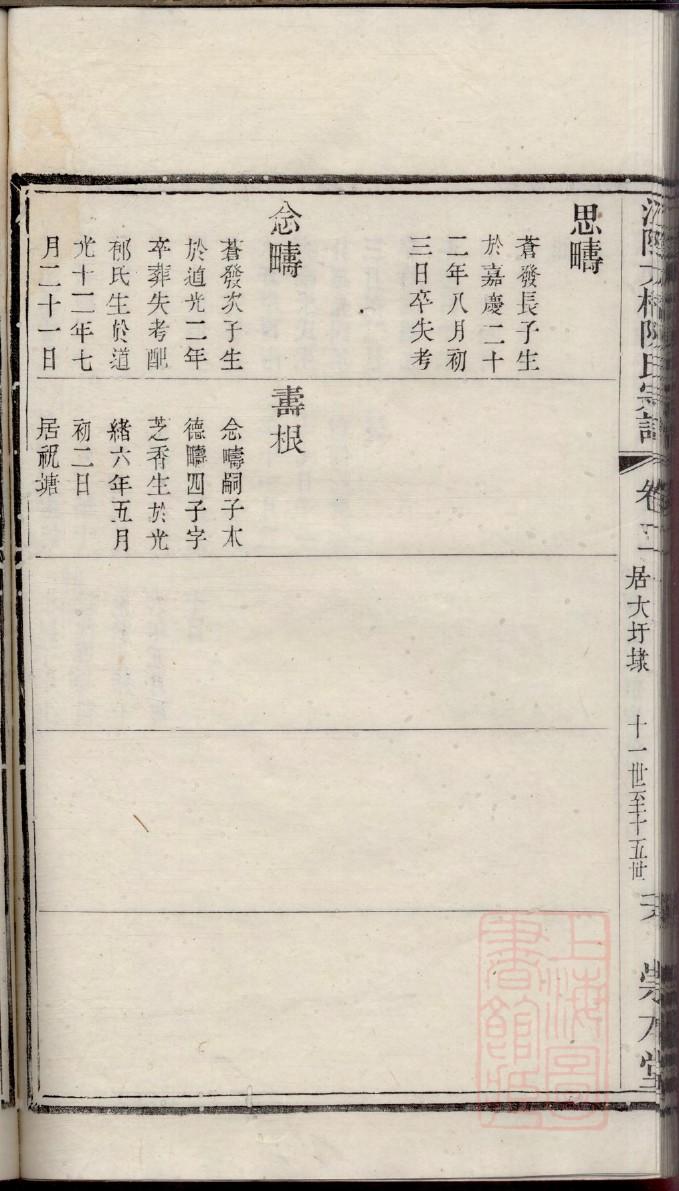 思疇
蒼發長子生
於嘉慶二十
二年八月初
三日卒失考
念疇
蒼發次子生
於道光二年
卒葬失考配
郁氏生於道
光十二年七
月二十一日
壽根
念疇嗣子本
德疇四子字
芝香生於光
緒六年五月
初二日
居祝塘
陳氏宗譜
卷二
居大圩埭
十一世至十五世
崇本堂
上海圖書館藏